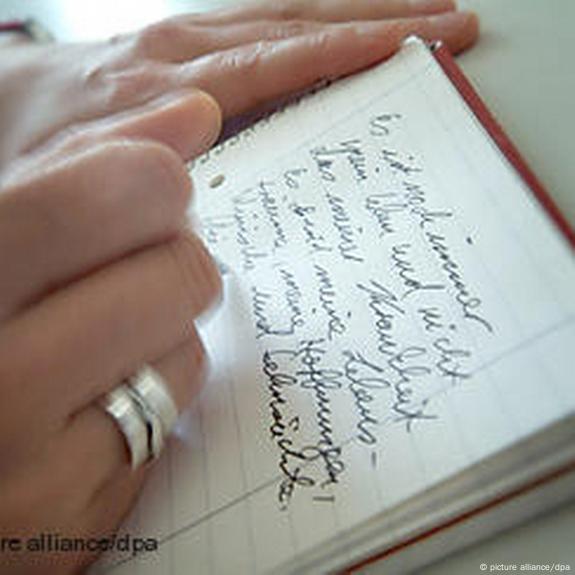 Es ist noch immer
mein Leben und nicht
das meiner Krankheit
Es sind meine Lebens-
träume, meine Hoffnungen,
Wünsche und Sehnsüchte.
re alliance/dpa
© picture alliance/dpa